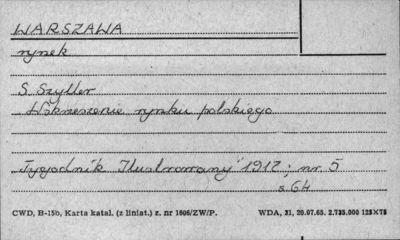 WARSZAWA
rynek
S. Szyller
Wskrzeszenie rynku polskiego
Tygodnik Ilustrowany 1917; nr. 5
s. 64
CWD, B-15b, Karta katal. (z liniat.) z. nr 1606/ZW/P. WDA, 21, 20.07.65. 2.735.000 125X75